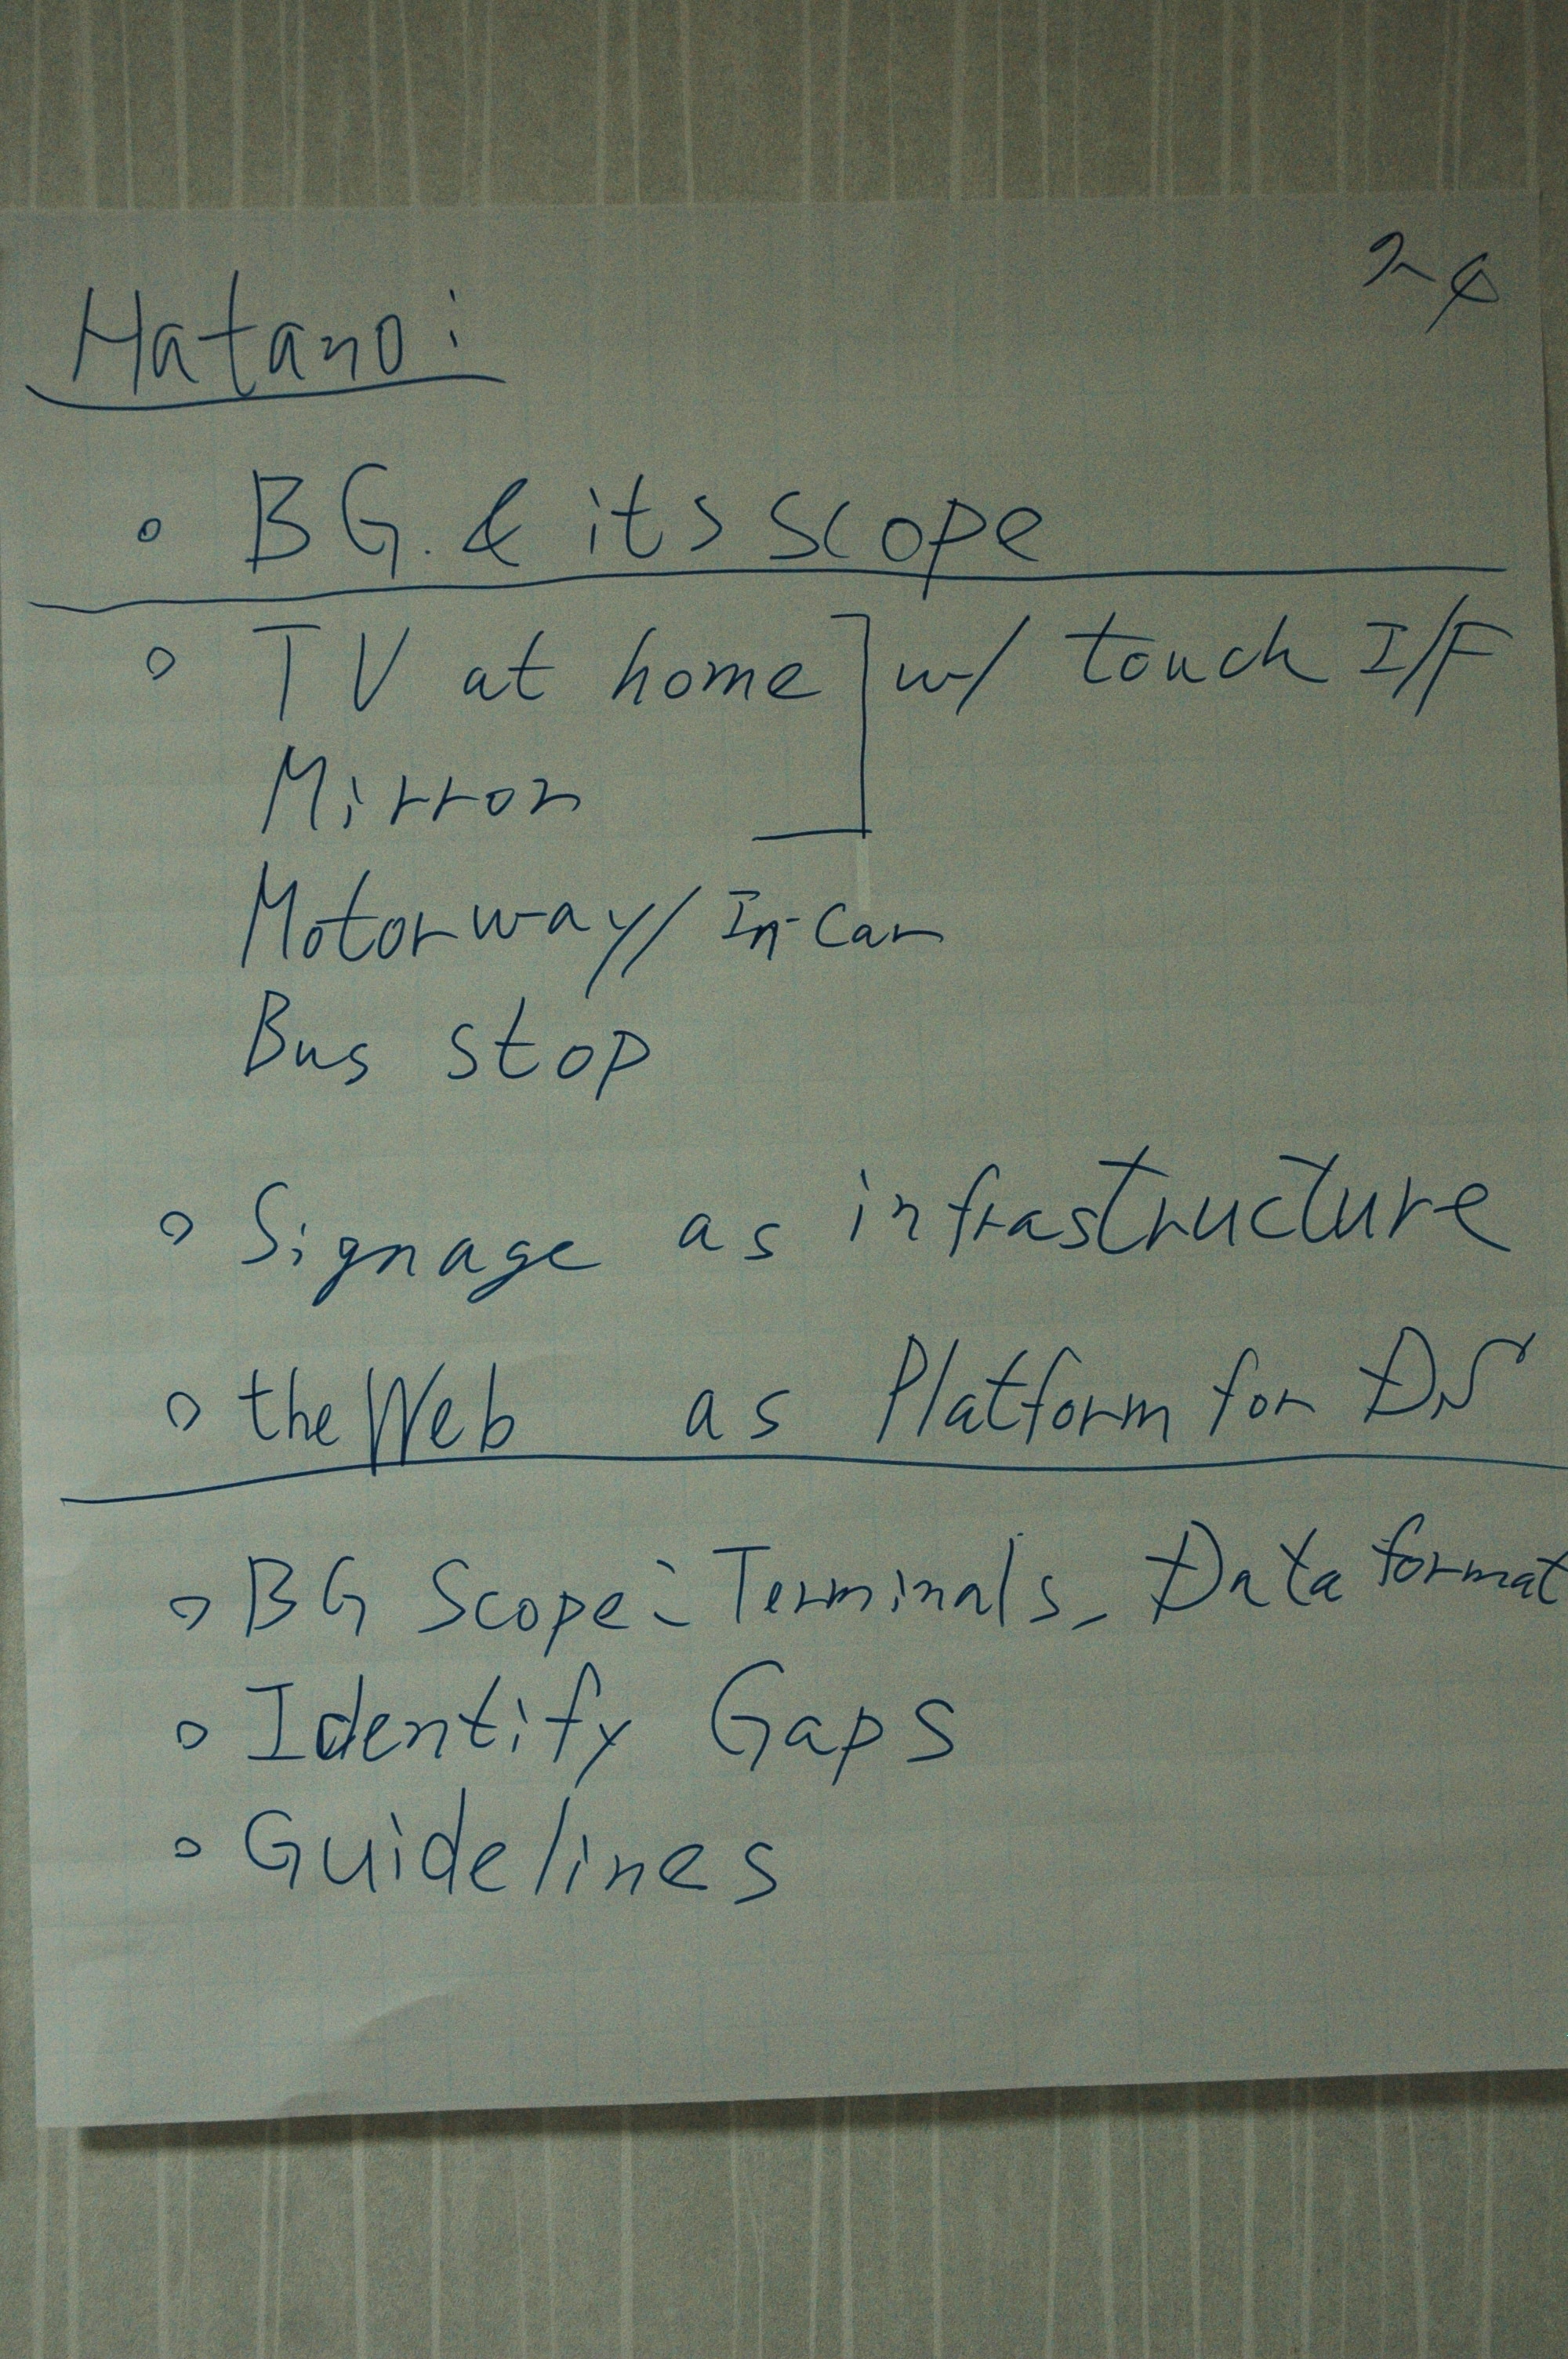 Hatano:
◦ BG. & its scope
◦ TV at home ] w/ touch I/F
Mirror
Motorway/In-Car
Bus stop
◦ Signage as infrastructure
◦ the Web as Platform for DS
◦ BG Scope: Terminals, Data format
◦ Identify Gaps
◦ Guidelines